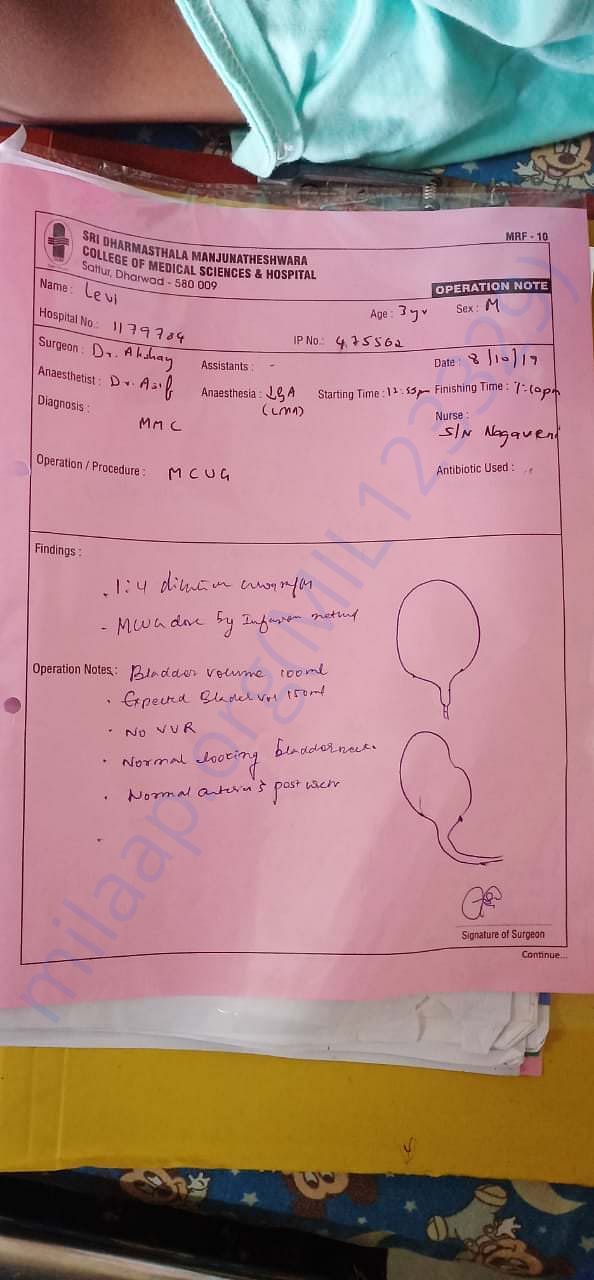 MRF - 10
SRI DHARMASTHALA MANJUNATHESHWARA
COLLEGE OF MEDICAL SCIENCES & HOSPITAL
Sattur, Dharwad - 580 009
OPERATION NOTE
Name : Levi
Age : 3 yr Sex : M
Hospital No.: 1179704
IP No.: 475562
Surgeon : Dr. Akshay Assistants : - Date : 8/10/19
Anaesthetist : Dr. Asif Anaesthesia : Starting Time : 12:55pm Finishing Time : 1:10pm
(LMA)
Diagnosis : MMC
Nurse :
S/N Nagaveni
Operation / Procedure : MCUG
Antibiotic Used :
Findings :
. 1:4 dilution
- MCUG done by Infusion method
Operation Notes : Bladder volume 100ml
. Expected Bladder vol 150ml
. No VUR
. Normal looking bladder neck.
. Normal anterior & post
Signature of Surgeon
Continue...
milaap.org(MIL123329)